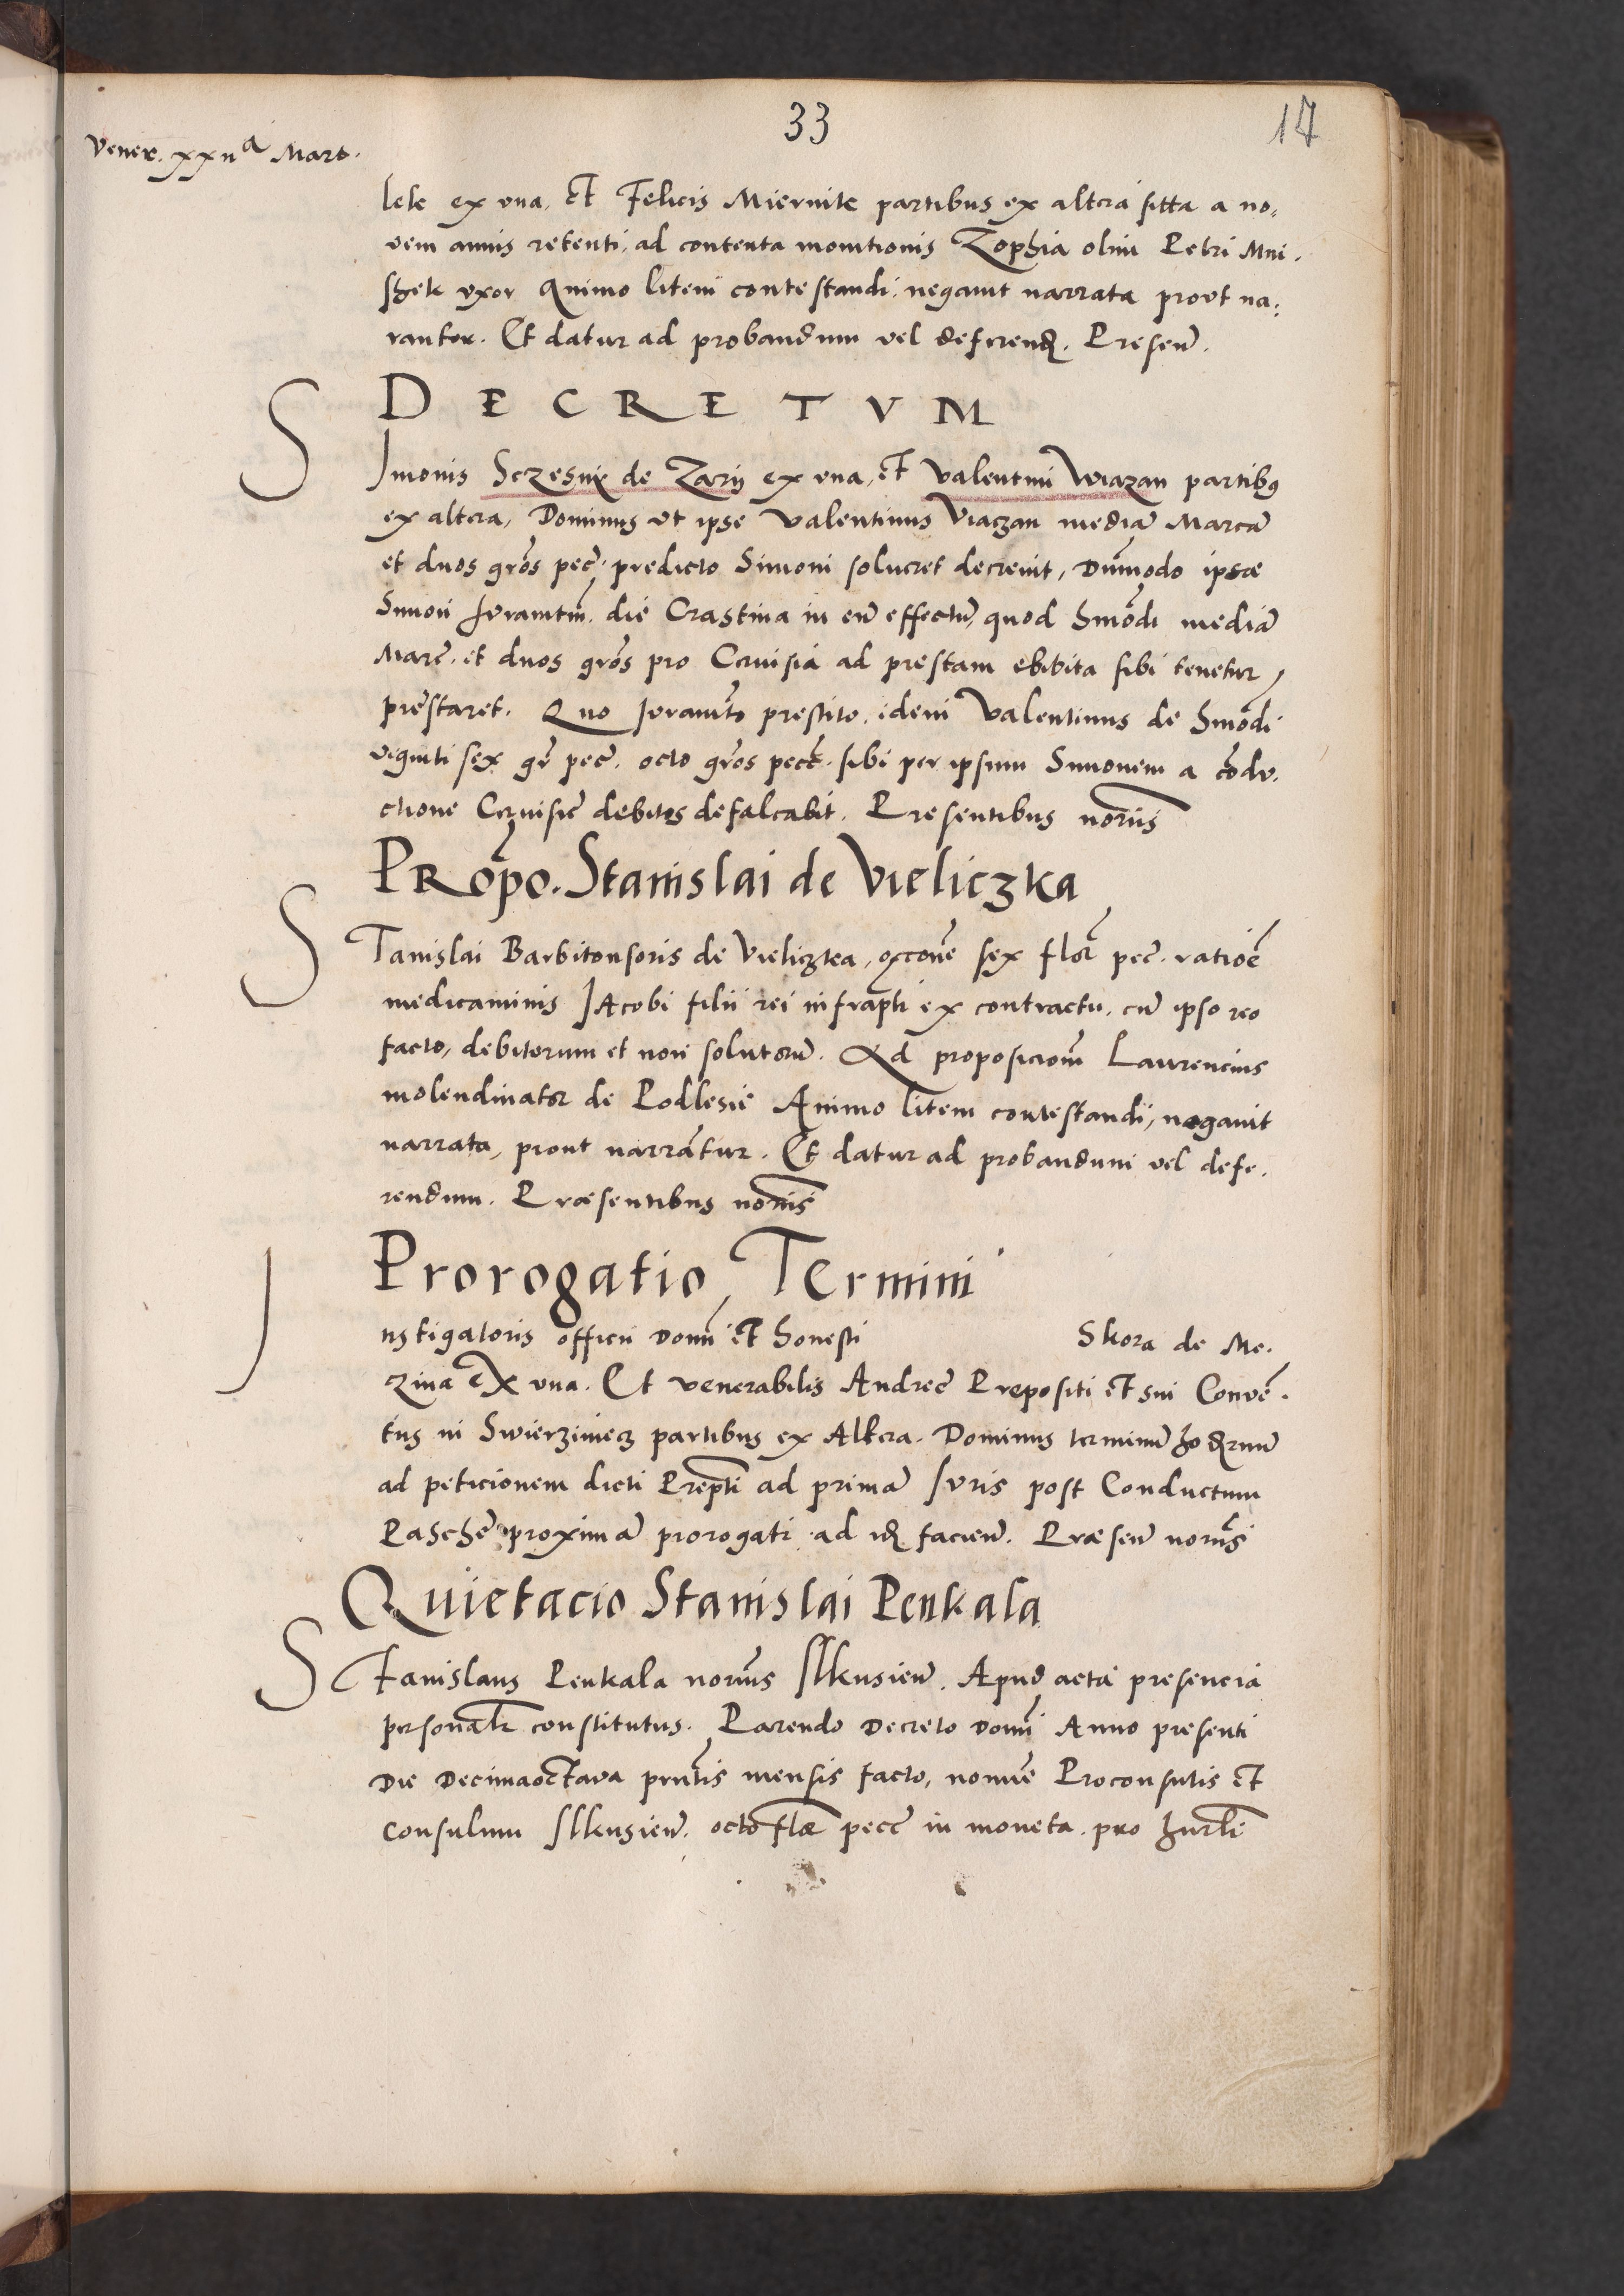 33
17
Vener. xxııª Mart.
lele ex vna, et Felicis Miernik partibus ex altera sitta a no,
vem annis retenti, ad contenta monitionis Zophia olim Petri Mni,
shek vxor Animo litem contestandi, negauit narrata provt na,
rantor. Et datur ad probandum vel deferend. Presen̄.
DECRETVM
SImonis Sczesnÿ de Zarij ex vna, et Valentini Wiazan partibus
ex altera, Dominus vt ipse Valentinus Viaczan mediā Marcā
et duos gros̄ pec̄. predicto Simoni solueret decreuit, Dūmodo ipsæ
Simon Jvramtm̄. die Crastina in eū effectū, quod hmōdi mediā
Marc̄. et duos gros̄ pro Ceruisia ad prestam ebibita sibi tenetur,
prestaret. Quo Jvramt̄o prestito, idem Valentinus de hmōdi
viginti sex gr̄ pec̄. octo gros̄ pecc̄. sibi per ipsum Simonem a cōdv,
ctione Ceruisie debitos defalcabit. Presentibus nor̄iis
PRopo. Stanislai de Vieliczka
STanislai Barbitonsoris de Vieliczka, occone sex flor̄ pec̄. ratiōe
medicaminis Jacobi filii rei infrapt̄i ex contractu, cū ipso reo
facto, debitorum et non solutorū. Ad proposicionm̄ Laurencius
molendinator de Podlesie Animo litem contestandi, negauit
narrata, prout narrāntur. Et datur ad probandum vel defe,
rendum. Præsentibus nor̄iis
Prorogatio Termini
Jnstigatoris officii Domī et honesti Skora de Me,
czina Ex vna. Et venerabilis Andree Prepositi et sui Convē,
tus in Swierziniecz partibus ex Altera. Dominus terminū hodrnū
ad peticionem dicti Prepti ad primā Jvris post Conductum
Paschē proximā prorogati ad id faciен̄. Præsen̄ nor̄iis
Quietacio Stanislai Penkala
Stanislaus Penkala nor̄ius Jlkusien̄. Apud acta presencia
personalr̄ constitutus. Parendo Decreto Domī Anno presenti
Die Decimaoctava prnt̄is mensis facto, nomīe Proconsulis et
consulum Jlkusien̄. octo flæ pecc̄ in moneta. pro